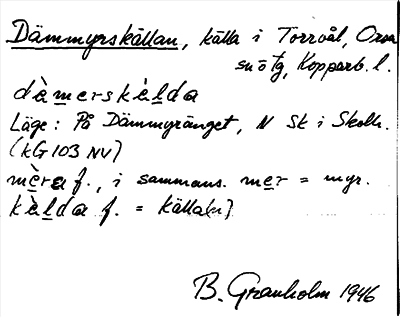 Dämmyrskällan, källa i Torrvål, Orsa
sn ö tg, Kopparb. l.
dàmerskælda
Läge: På Dämmyränget, N Sk i Skolh.
(kG 103 NV)
mèra f., i sammans. mer = myr.
kælda f. = källa(n)
B. Granholm 1946